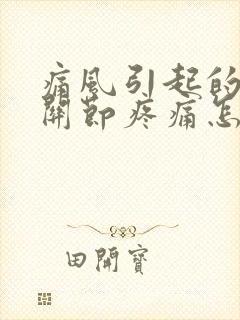 痛風引起的
關節疼痛怎
田開寶